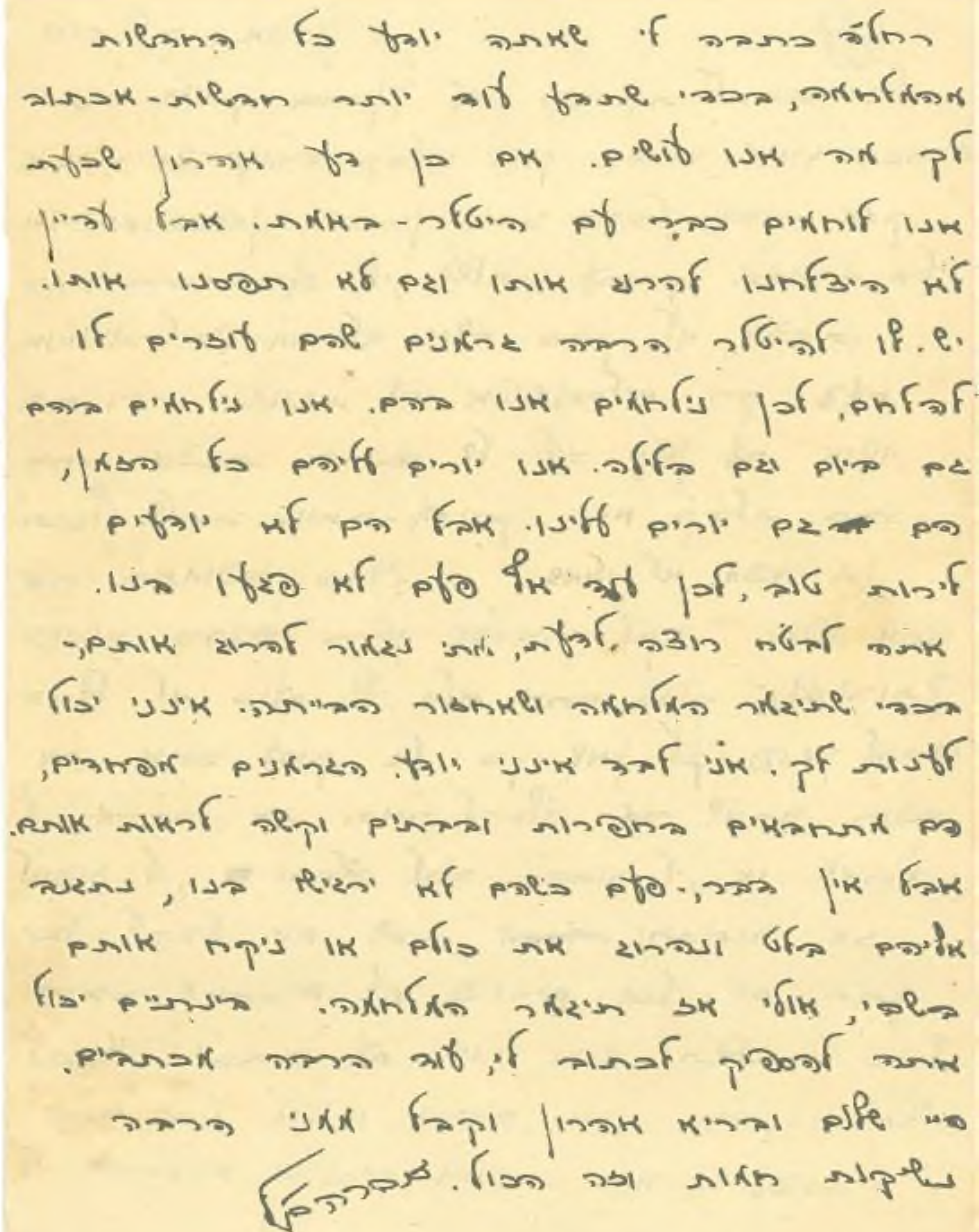 רחל'ה כתבה לי שאתה יודע כל החדשות
מהמלחמה, בכדי שתדע עוד יותר חדשות - אכתוב
לך מה אנו עושים. אם כן דע אהרון שכעת
אנו לוחמים כבר עם היטלר - באמת. אבל עדיין
לא היצלחנו להרוג אותו וגם לא תפסנו אותו.
יש לו להיטלר הרבה גרמנים שהם עוזרים לו
להלחם, לכן נילחמים אנו בהם. אנו נילחמים בהם
גם ביום וגם בלילה. אנו יורים עליהם כל הזמן,
הם גם יורים עלינו. אבל הם לא יודעים
לירות טוב, לכן עוד אף פעם לא פגעו בנו.
אתה לבטח רוצה לדעת, מתי נגמור להרוג אותם,-
בכדי שתיגמר המלחמה ושאחזור הבייתה. אינני יכול
לענות לך. אני לבד אינני יודע. הגרמנים מפחדים,
הם מתחבאים בחפירות ובבתים וקשה לראות אותם.
אבל אין דבר,- פעם כשהם לא ירגישו בנו, נתגנב
אליהם בלט ונהרוג את כולם או ניקח אותם
בשבי, אולי אז תיגמר המלחמה. בינתיים יכול
אתה להספיק לכתוב לי, עוד הרבה מכתבים.
היי שלום ובריא אהרון וקבל ממני הרבה
נשיקות חמות וזה הכול. אברהם